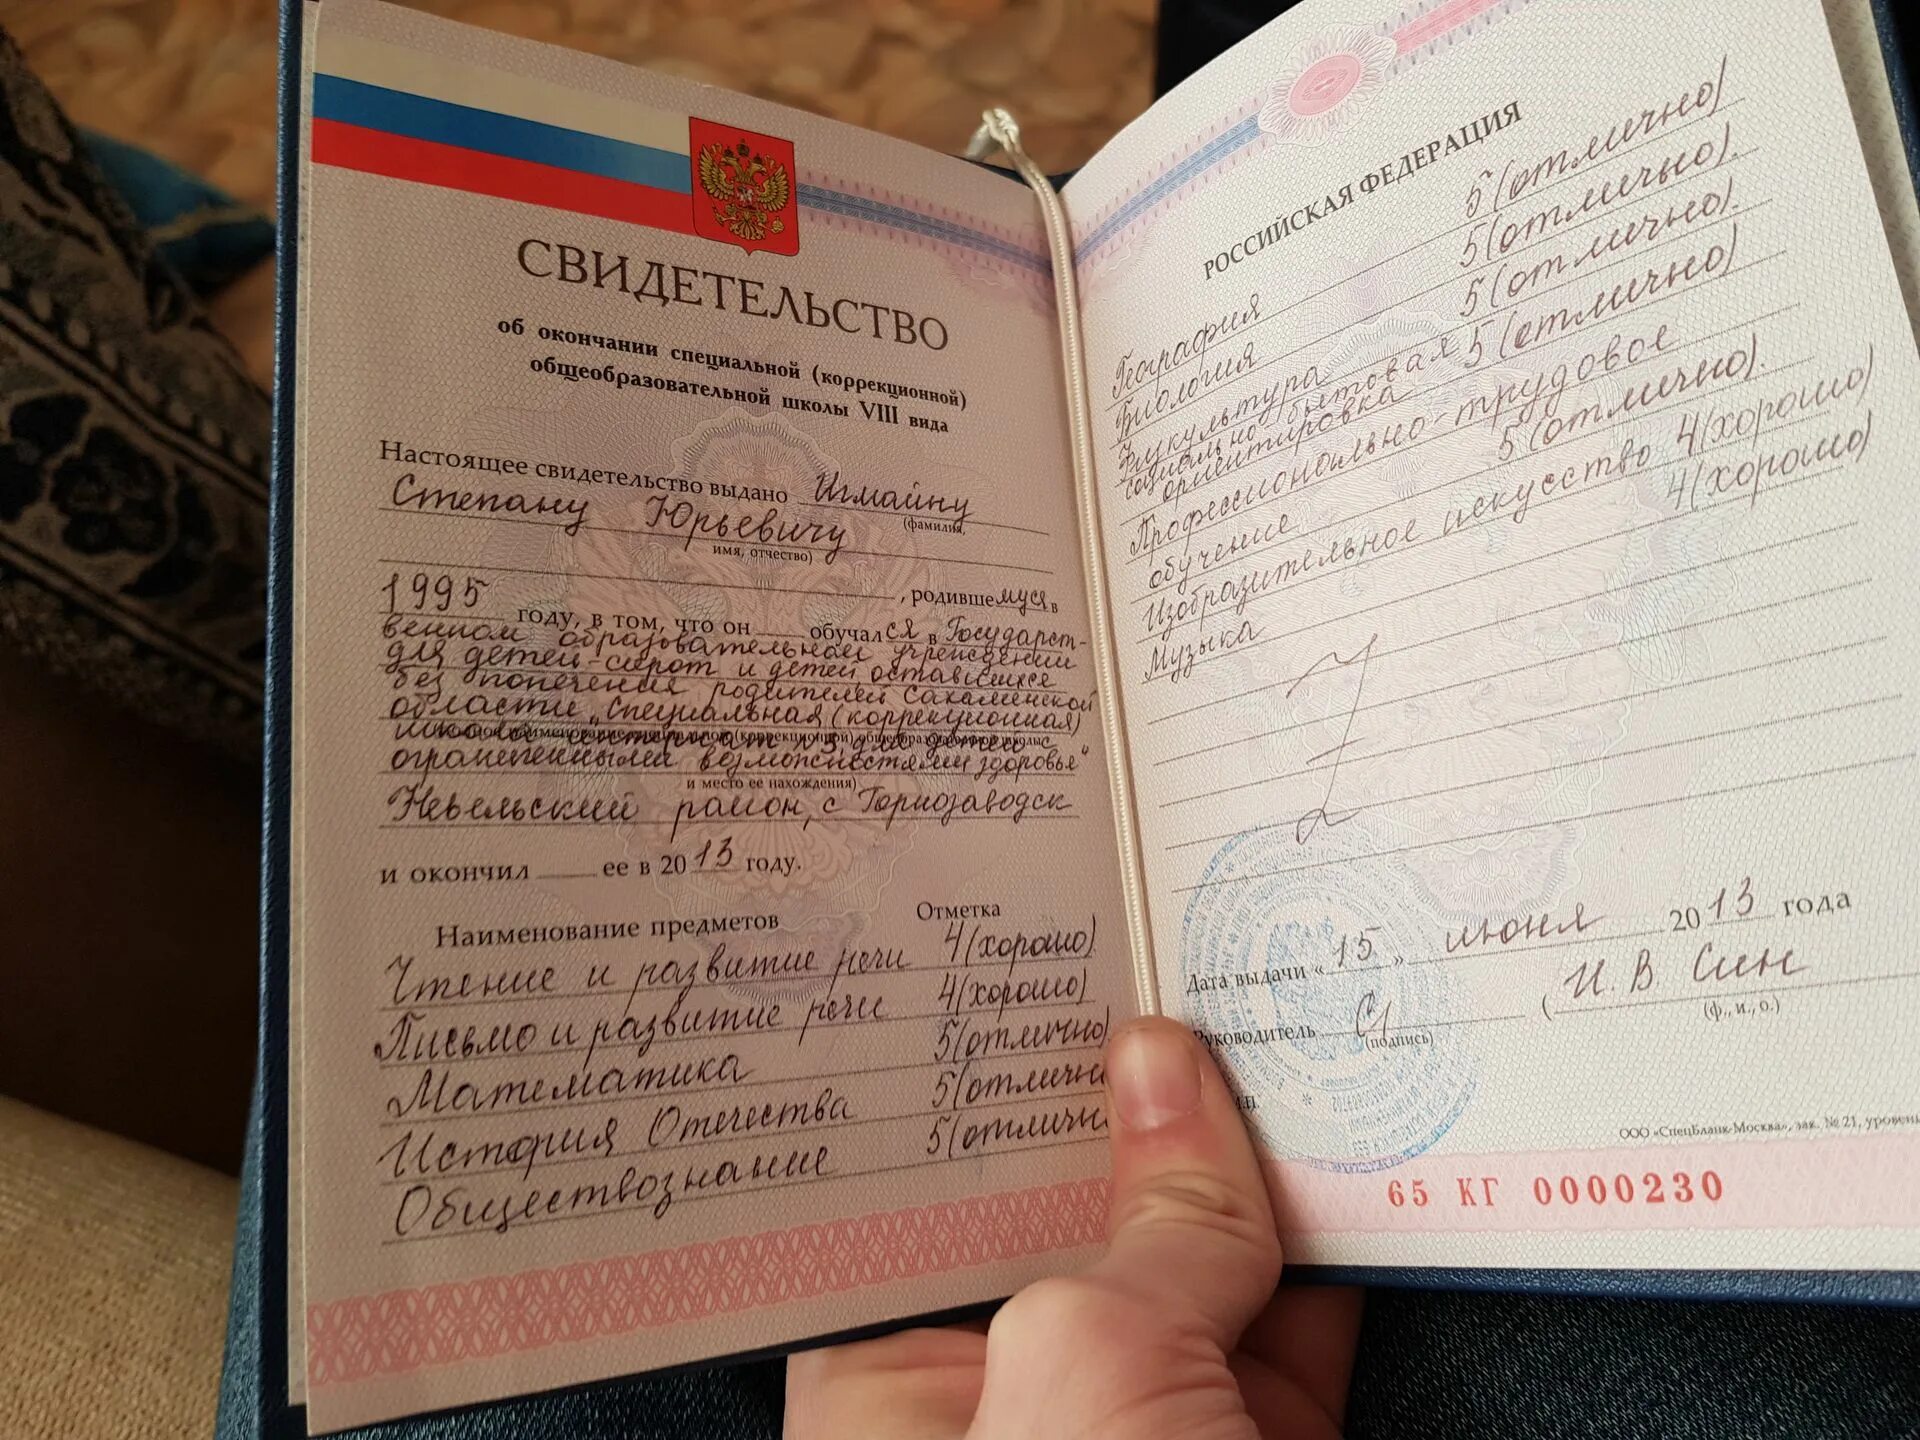 СВИДЕТЕЛЬСТВО
об окончании специальной (коррекционной)
общеобразовательной школы VIII вида
Настоящее свидетельство выдано Игмайну
(фамилия,
Степану Юрьевичу
имя, отчество)
, родившемуся в
1995 году, в том, что он обучался в Государст-
венном образовательном учреждении
для детей-сирот и детей оставшихся
без попечения родителей Сахалинской
области „Специальная (коррекционная)
ограниченными возможностями здоровья"
и место ее нахождения)
Невельский район, с Горнозаводск
и окончил ее в 2013 году.
Наименование предметов Отметка
Чтение и развитие речи 4(хорошо)
Письмо и развитие речи 4(хорошо)
Математика 5(отлично)
История Отечества 5(отлично
Обществознание 5(отличн
РОССИЙСКАЯ ФЕДЕРАЦИЯ
География 5(отлично)
Биология 5(отлично).
Физкультура 5(отлично).
социально бытовая
ориентировка 5(отлично)
Профессионально-трудовое
обучение 5(отлично).
Изобразительное искусство 4(хорошо)
Музыка 4(хорошо)
Дата выдачи «15» июня 2013 года
Руководитель (И. В. Син
(подпись) (ф., и., о.)
М.П.
ООО «СпецБланк-Москва», зак. № 21, уровень
65 КГ 0000230